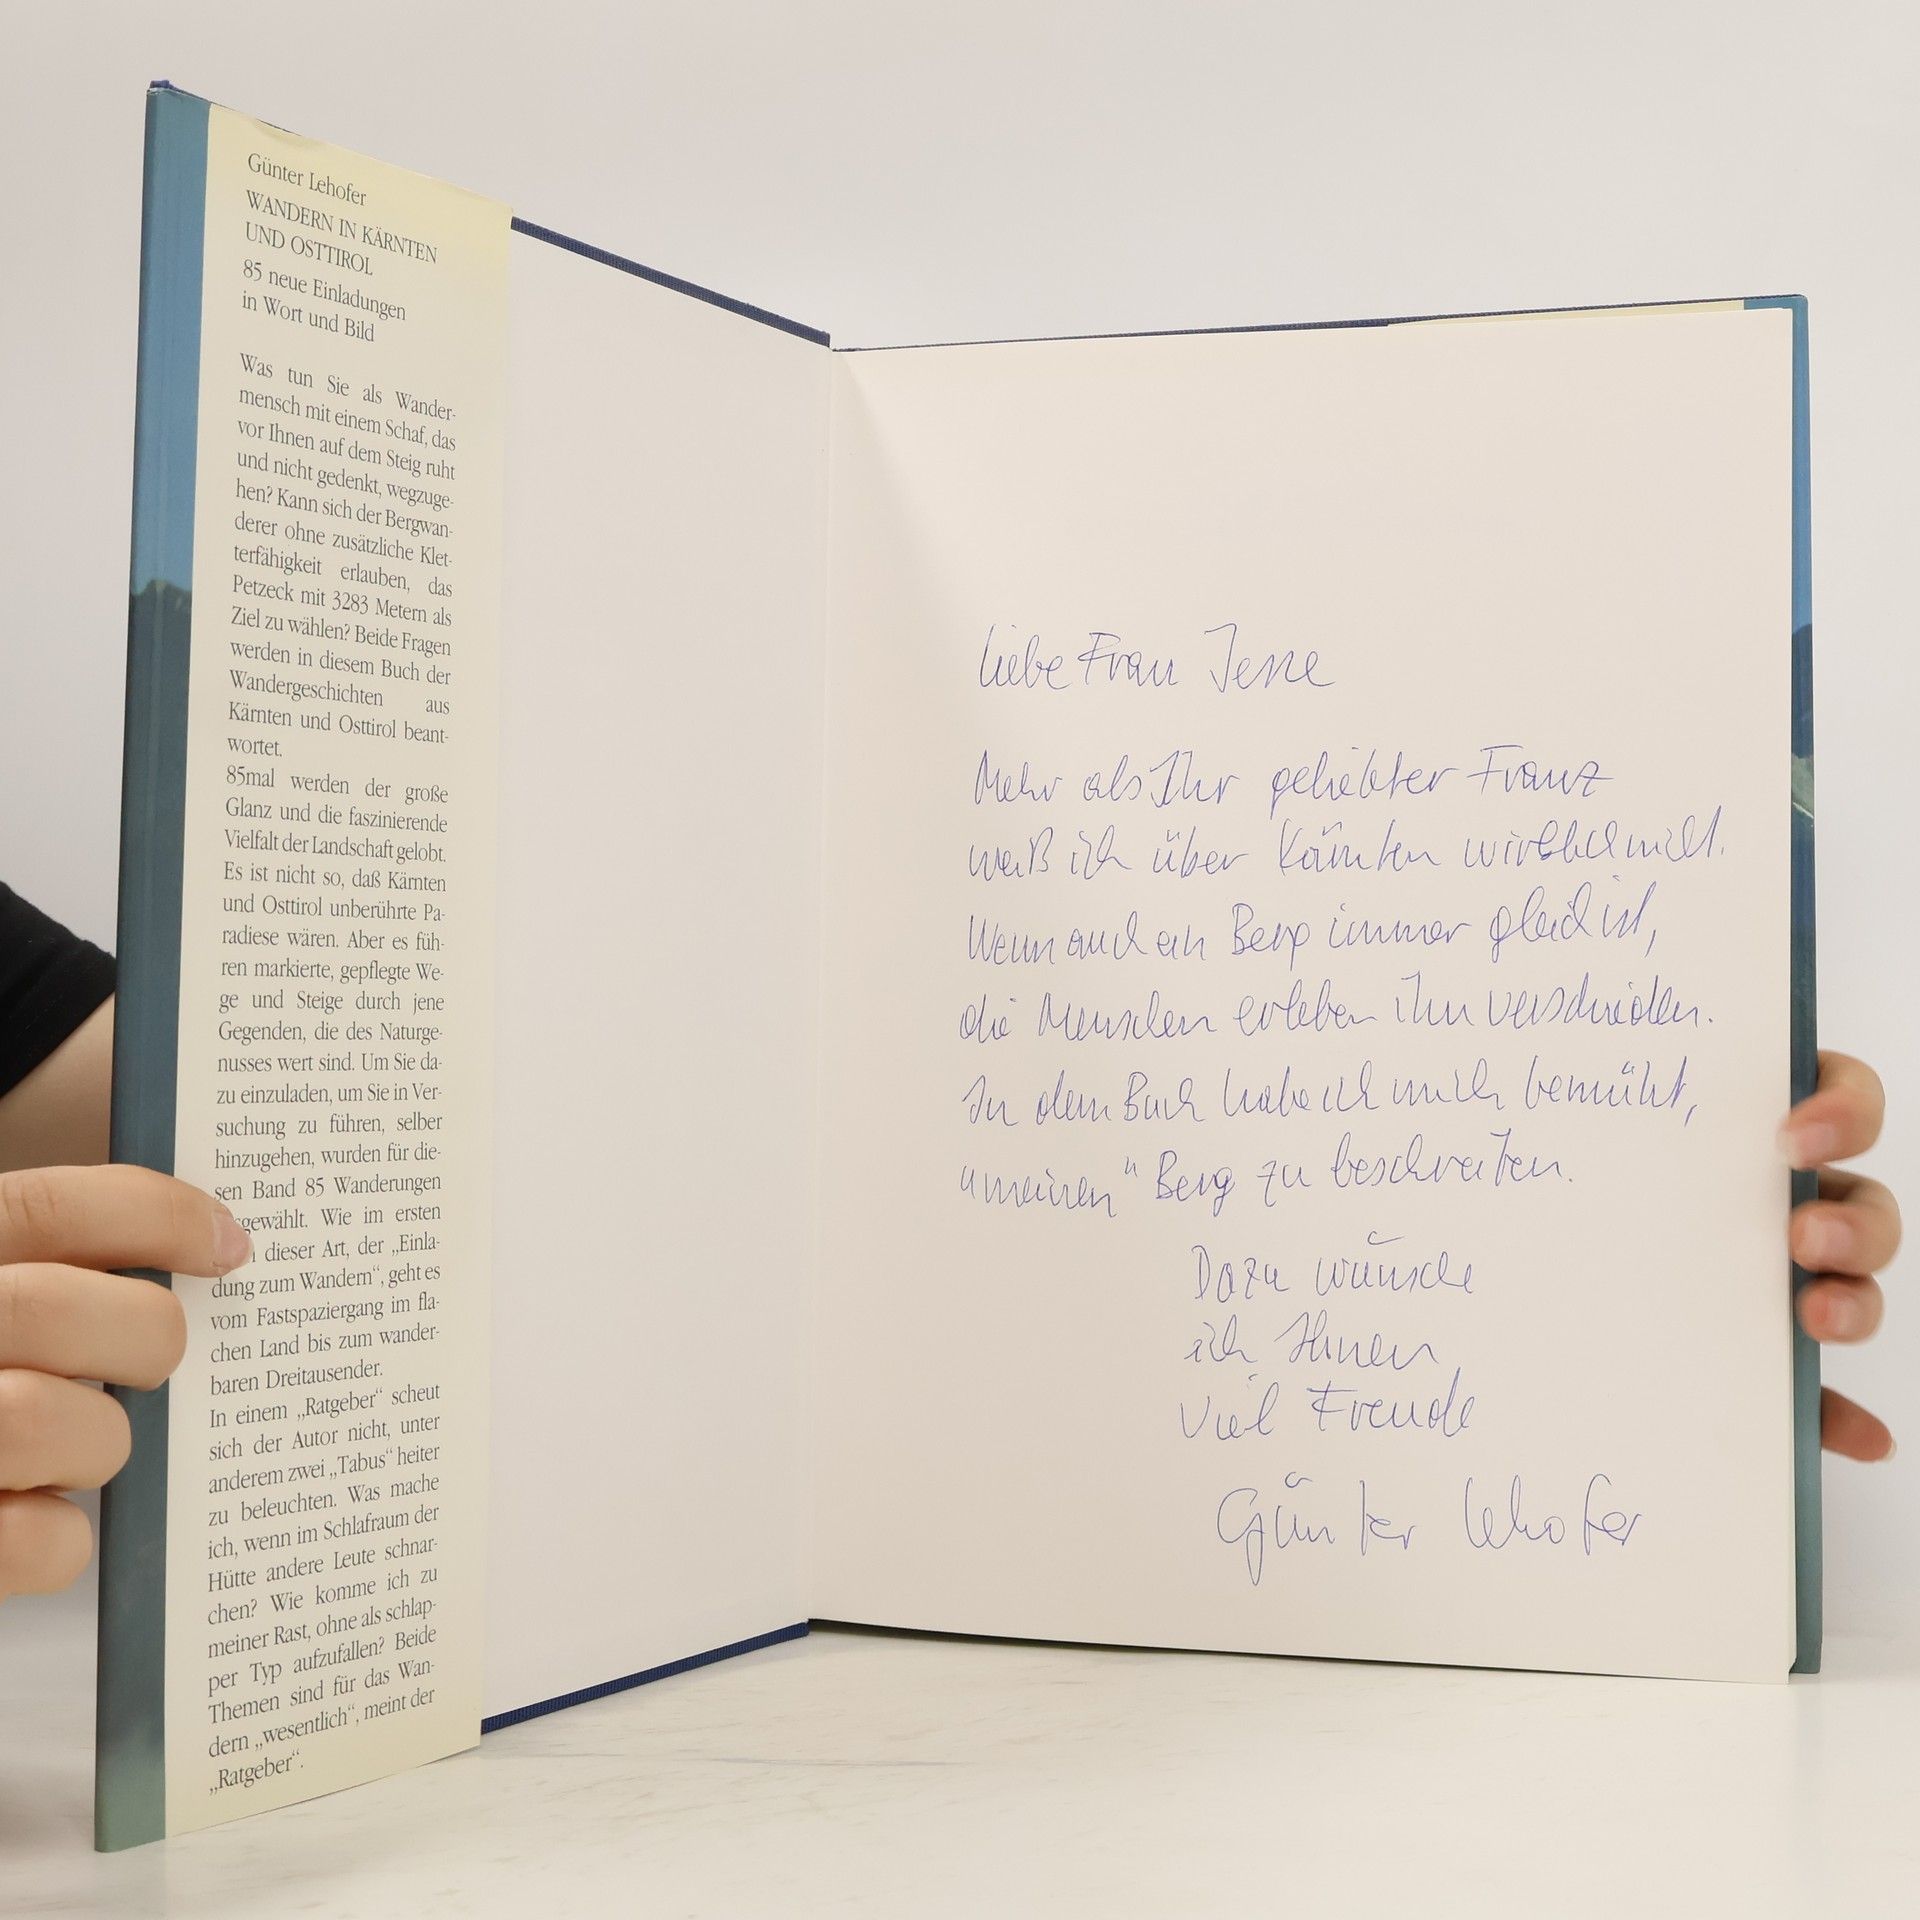 Günter Lehofer
WANDERN IN KÄRNTEN
UND OSTTIROL
85 neue Einladungen
in Wort und Bild
Was tun Sie als Wander-
mensch mit einem Schaf, das
vor Ihnen auf dem Steig ruht
und nicht gedenkt, wegzuge-
hen? Kann sich der Bergwan-
derer ohne zusätzliche Klet-
terfähigkeit erlauben, das
Petzeck mit 3283 Metern als
Ziel zu wählen? Beide Fragen
werden in diesem Buch der
Wandergeschichten aus
Kärnten und Osttirol beant-
wortet.
85mal werden der große
Glanz und die faszinierende
Vielfalt der Landschaft gelobt.
Es ist nicht so, daß Kärnten
und Osttirol unberührte Pa-
radiese wären. Aber es füh-
ren markierte, gepflegte We-
ge und Steige durch jene
Gegenden, die des Naturge-
nusses wert sind. Um Sie da-
zu einzuladen, um Sie in Ver-
suchung zu führen, selber
hinzugehen, wurden für die-
sen Band 85 Wanderungen
sgewählt. Wie im ersten
dieser Art, der „Einla-
dung zum Wandern“, geht es
vom Fastspaziergang im fla-
chen Land bis zum wander-
baren Dreitausender.
In einem „Ratgeber“ scheut
sich der Autor nicht, unter
anderem zwei „Tabus“ heiter
zu beleuchten. Was mache
ich, wenn im Schlafraum der
Hütte andere Leute schnar-
chen? Wie komme ich zu
meiner Rast, ohne als schlap-
per Typ aufzufallen? Beide
Themen sind für das Wan-
dern „wesentlich“, meint der
„Ratgeber“.
Liebe Frau Jesse
Mehr als Ihr geliebter Franz
weiß ich über Kärnten wirklich nicht.
Wenn auch ein Berg immer gleich ist,
die Menschen erleben ihn verschieden.
In dem Buch habe ich mich bemüht,
"meinen" Berg zu beschreiben.
Dazu wünsche
ich Ihnen
viel Freude
Günter Lehofer